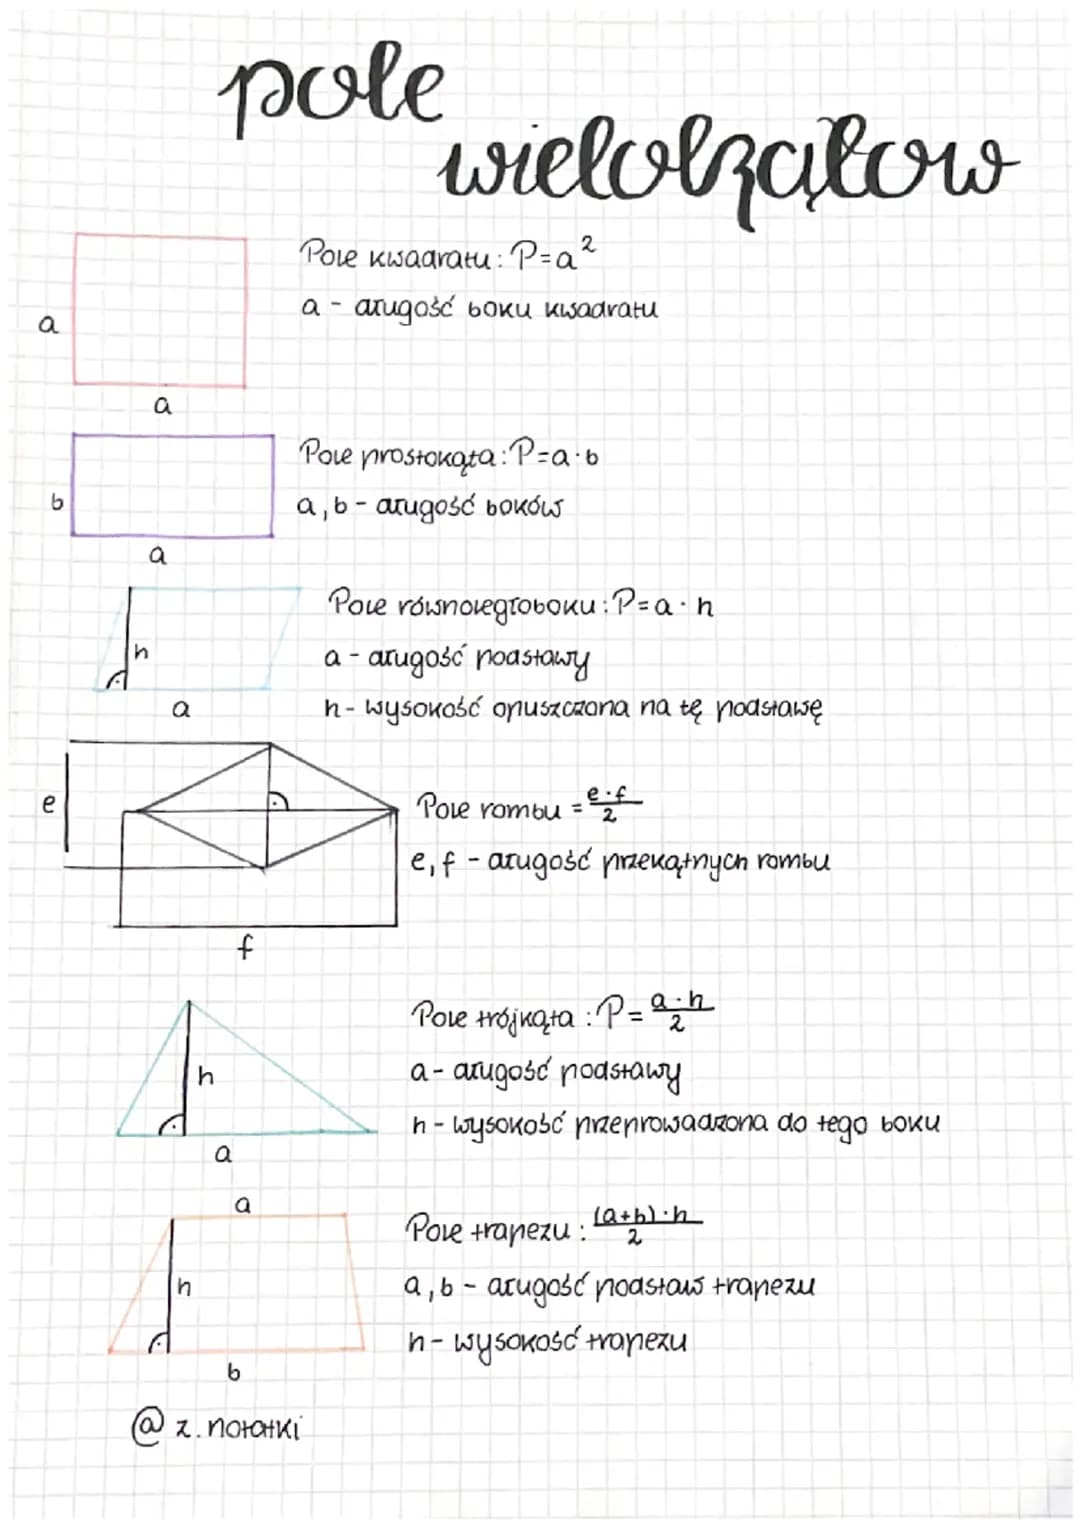 pole
wielokątów
Pole kwadratu: P=a²
a - długość boku kwadratu
a
a
Pole prostokąta: P=a·b
a, b - długość boków
b
a
Pole równoległoboku: P=a·h
a - długość podstawy
h - wysokość opuszczona na tę podstawę
h
a
Pole rombu = e·f/2
e, f - długość przekątnych rombu
e
f
Pole trójkąta: P= a·h/2
a - długość podstawy
h - wysokość przeprowadzona do tego boku
h
a
a
Pole trapezu: (a+b)·h/2
a, b - długość podstaw trapezu
h - wysokość trapezu
h
b
@z.notatki